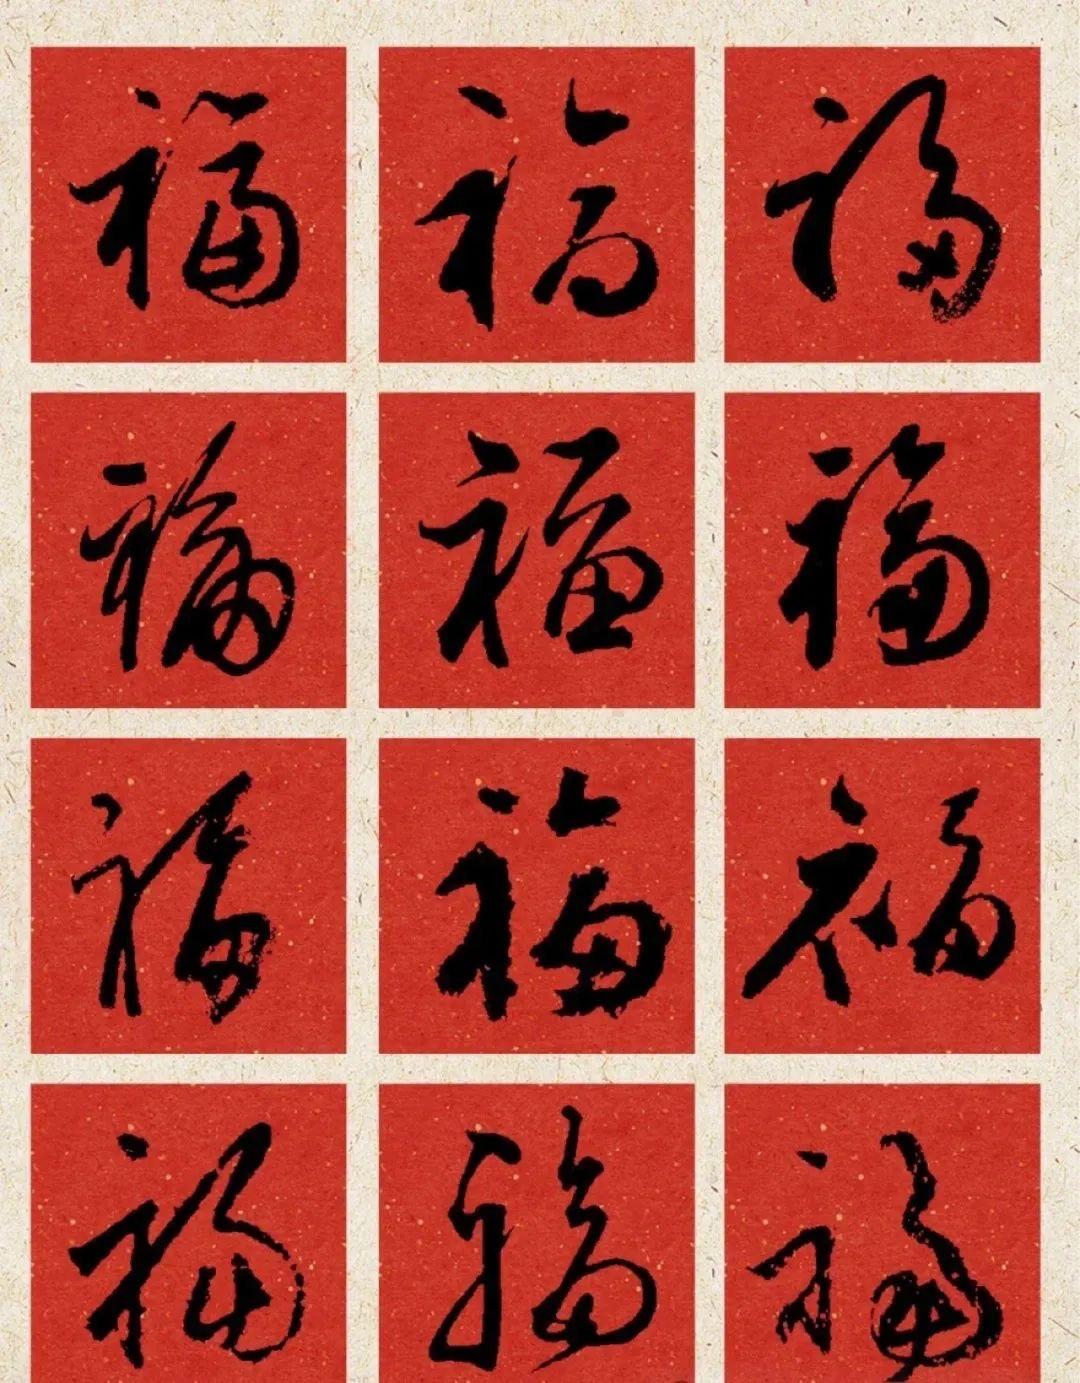 福 福 福
福 福 福
福 福 福
福 福 福